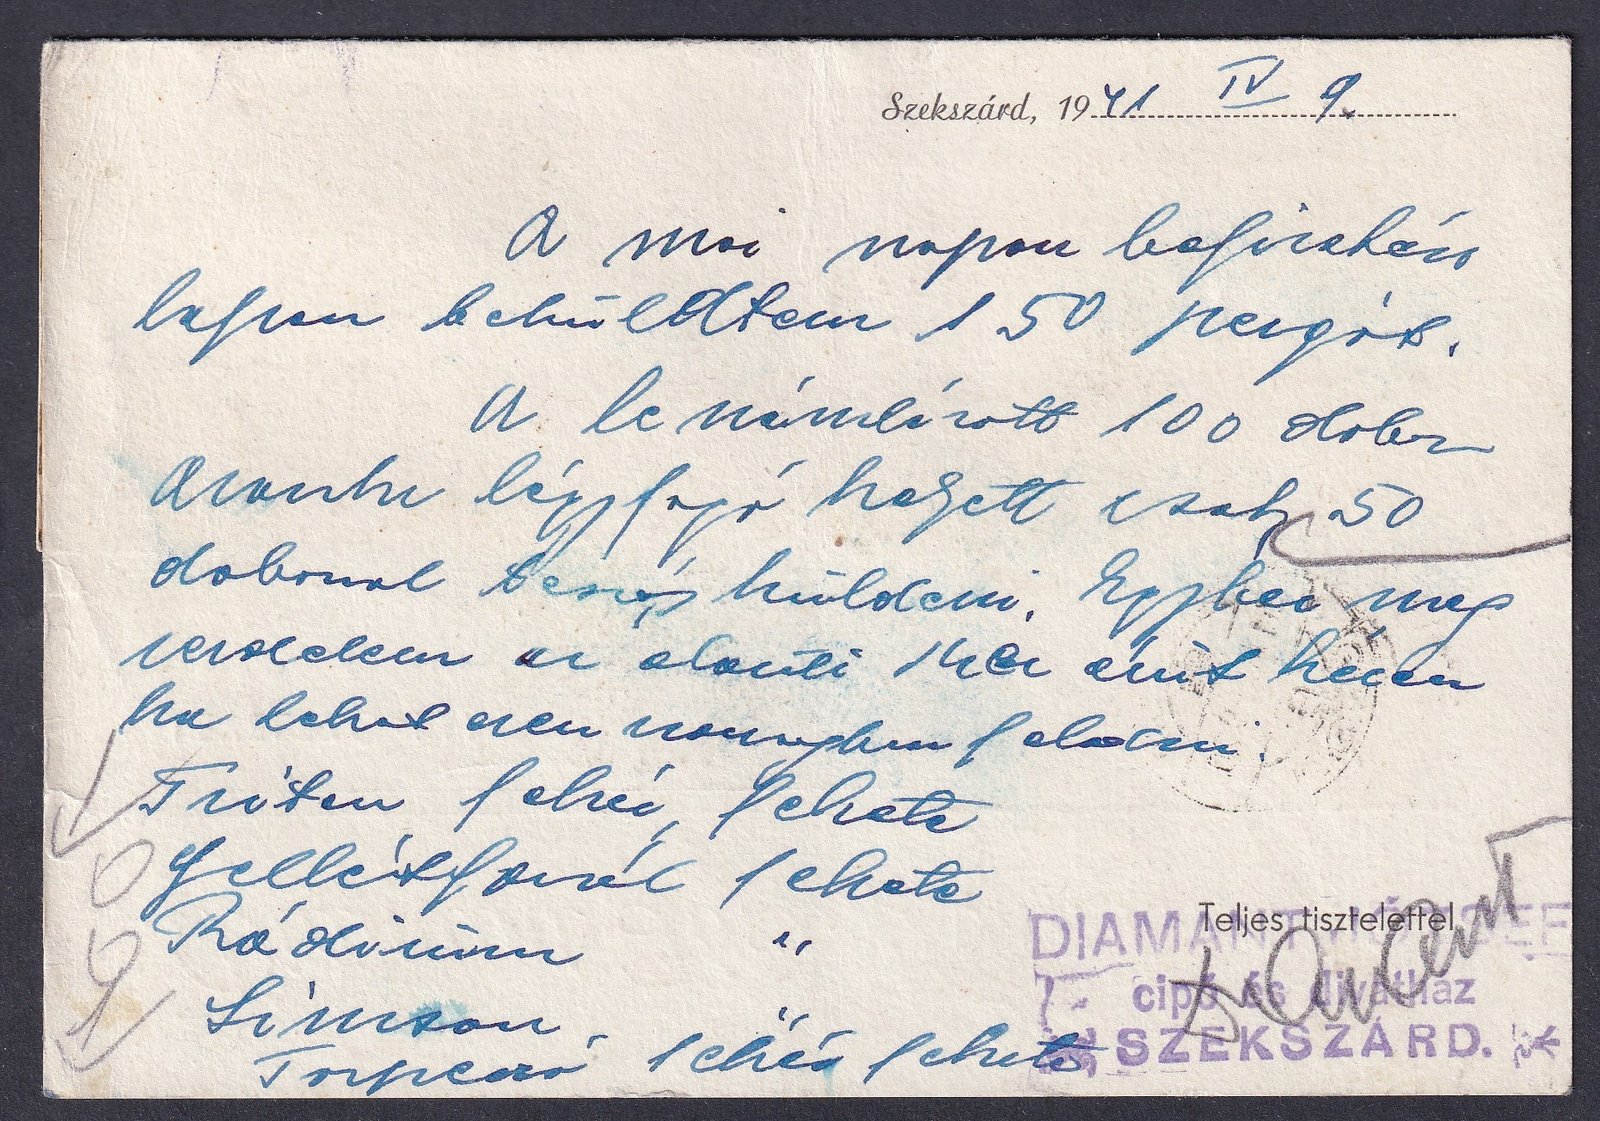 Szekszárd, 1941 IV 9.
A mai napon befizetési
lapon beküldtem 150 pengőt.
A le számlázott 100 doboz
légyfogó helyett csak 50
dobozzal küldeni. Egyben meg
rendelem az alanti árut kérem
ha lehet ezen feladni.
Triton fehér, fekete
Gellértfonál fekete
Rádium "
Simson "
Torpedó fehér fekete
Teljes tisztelettel
DIAMANT
cipő és divatház
SZEKSZÁRD.